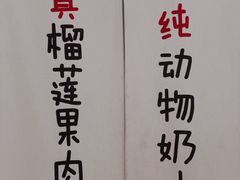 真榴莲果肉
纯动物奶